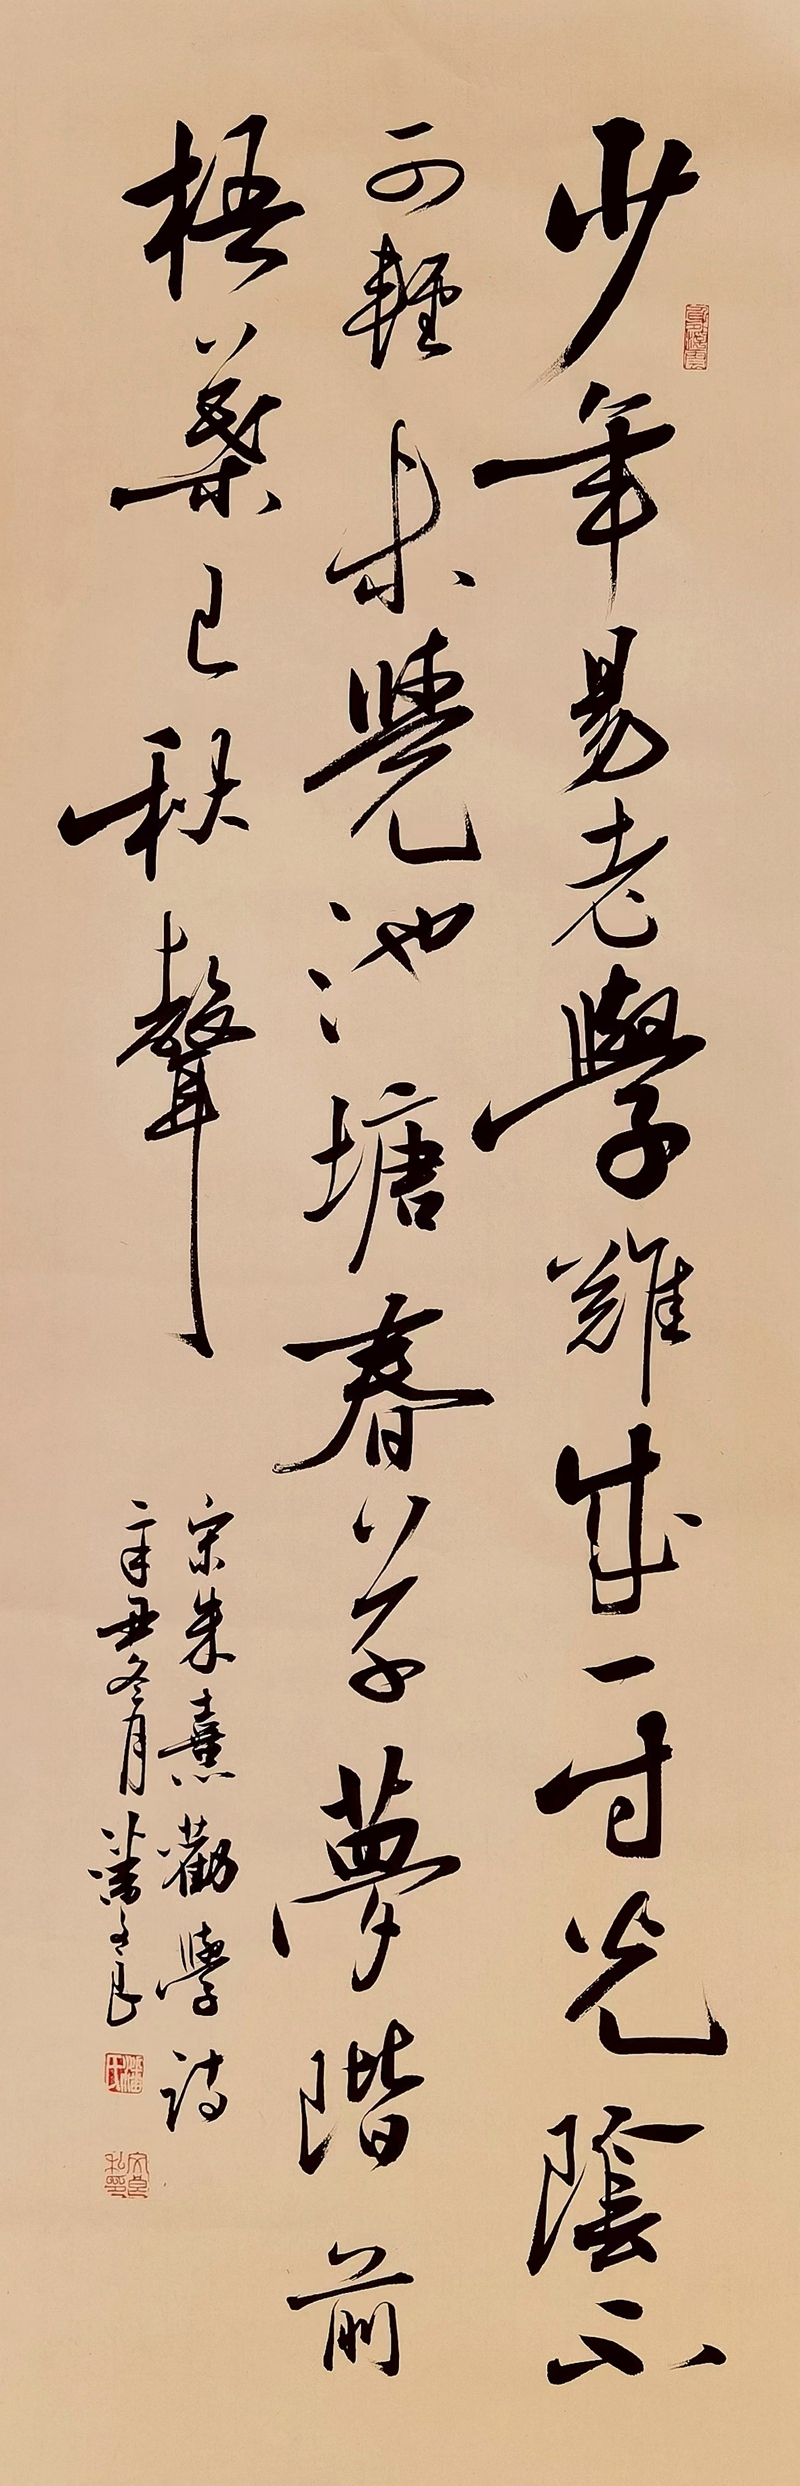 少年易老學難成一寸光陰不
可輕未覺池塘春草夢階前
梧葉已秋聲
宋朱熹勸學詩
辛丑冬月潘文良
潘氏
文良私印